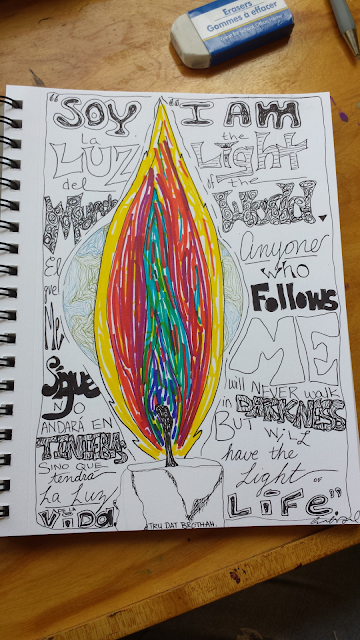 Erasers
Gommes à effacer
"SOY
La
LUZ
del
Mundo
El
que
Me
Sigue
no
ANDARÁ EN
TINIEBLAS
SINO QUE
tendrá
La Luz
de la
VIDA.
"I AM
the
Light
of the
World.
Anyone
who
Follows
ME
will NEVER walk
in DARKNESS
BUT WiLL
have the
Light of
LiFE."
TRU DAT BROTHAH.